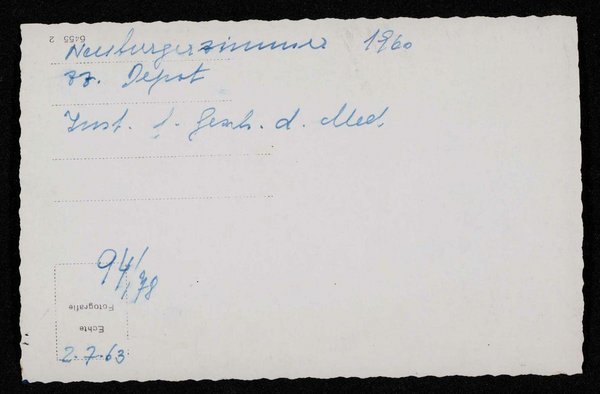 Neuburgerzimmer 1960
zz. Depot
Inst. f. Gesch. d. Med.
94/178
Fotografie
Echte
2.7.63
6455 2